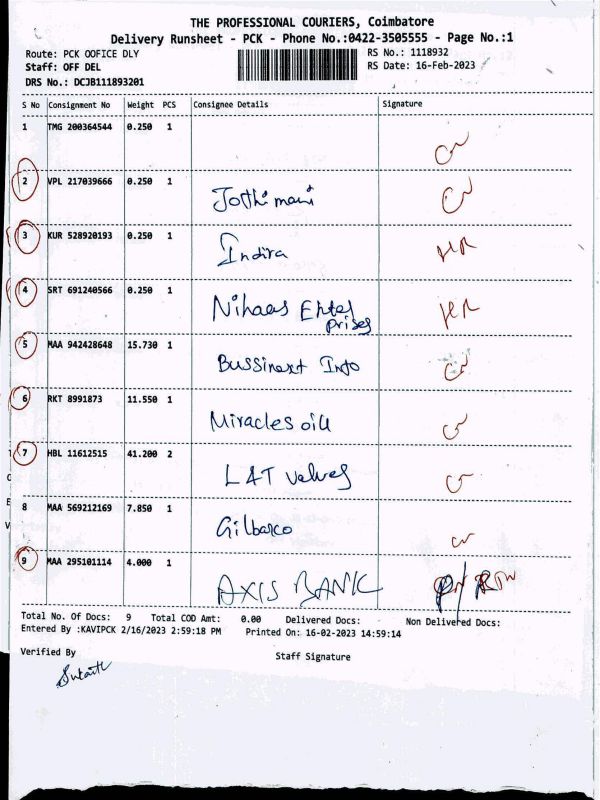 THE PROFESSIONAL COURIERS, Coimbatore
Delivery Runsheet - PCK - Phone No.:0422-3505555 - Page No.:1
Route: PCK OOFICE DLY RS No.: 1118932
Staff: OFF DEL RS Date: 16-Feb-2023
DRS No.: DCJB111893201
S No Consignment No Weight PCS Consignee Details Signature
1 TMG 200364544 0.250 1
2 VPL 217039666 0.250 1 Jothimani
3 KUR 528920193 0.250 1 Indira HR
4 SRT 691240566 0.250 1 Nihaas Enter HR
prises
5 MAA 942428648 15.730 1 Bussinext Info
6 RKT 8991873 11.550 1 Miracles oill
7 HBL 11612515 41.200 2 L&T valves
8 MAA 569212169 7.850 1 Gilbarco
9 MAA 295101114 4.000 1 AXIS BANK
Total No. Of Docs: 9 Total COD Amt: 0.00 Delivered Docs: Non Delivered Docs:
Entered By :KAVIPCK 2/16/2023 2:59:18 PM Printed On: 16-02-2023 14:59:14
Verified By Staff Signature